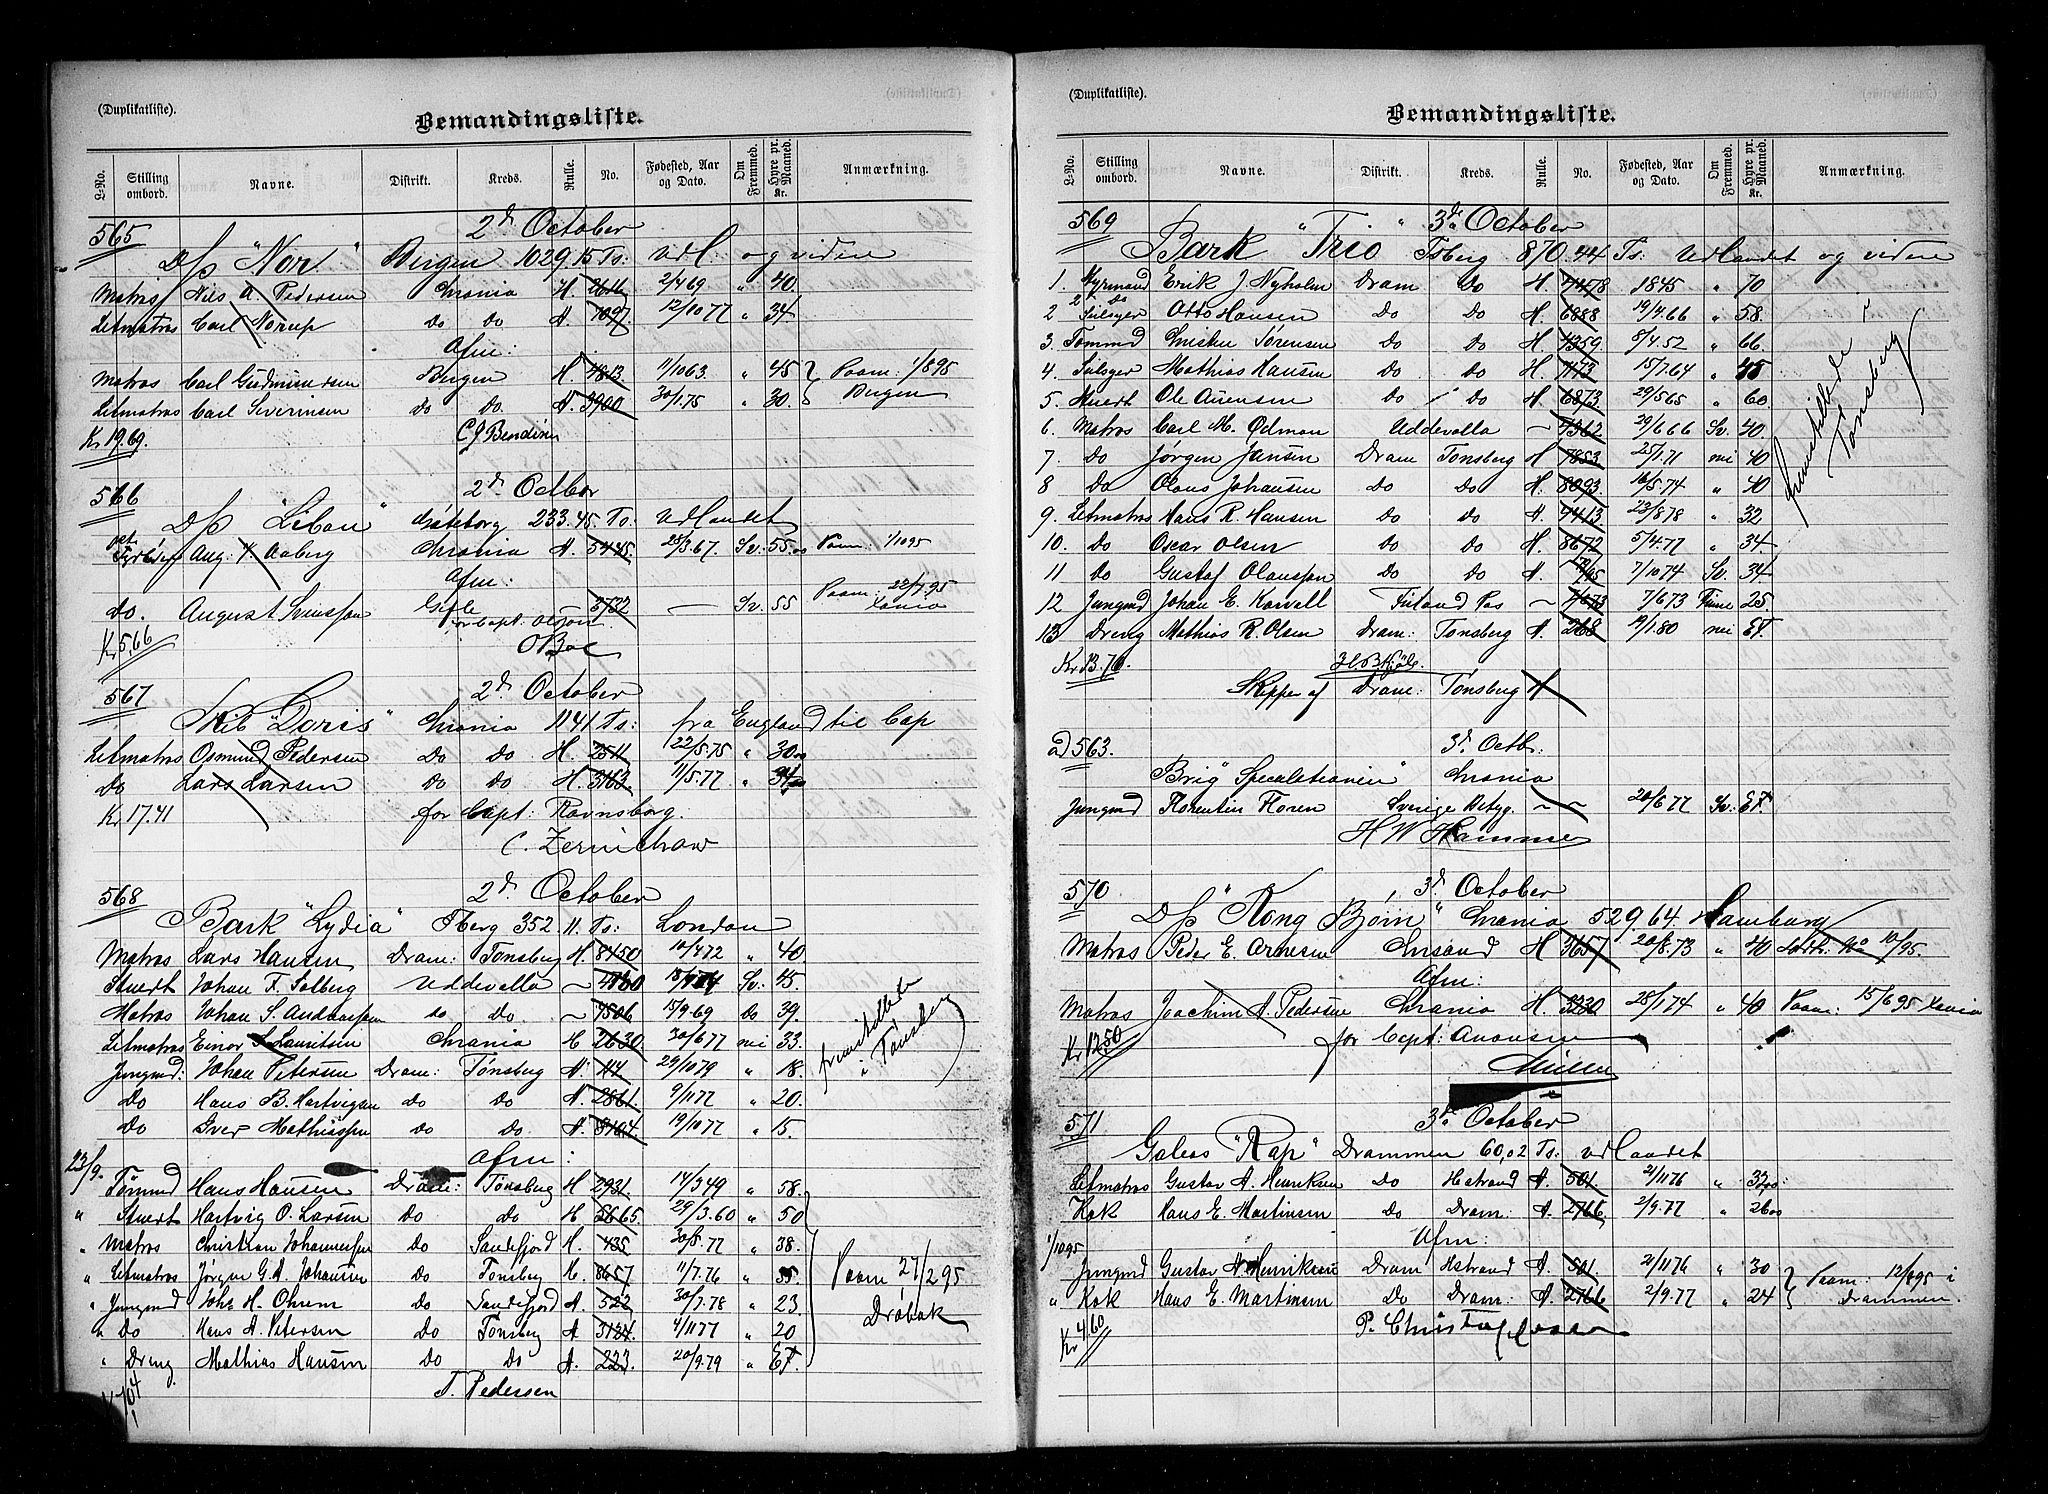 (Duplikatliste).
Bemandingsliste.
L-No. Stilling ombord. Navne. Distrikt. Kreds. Rulle. No. Fødested, Aar og Dato. Om Fremmed. Hyre pr. Maaned. Kr. Anmærkning.
565 2d October
D/s "Nor" Bergen 1029.15 Ts. Udl. og videre
Matros Nils A. Pedersen Chrania H 2616 2/4 69 " 40
Letmatros Carl Norup Do Do A. 7097 12/10 77 " 34
Afm:
Matros Carl Gudmundsen Bergen H. 4813 11/10 63 " 45 Paam: 1/8 95
Letmatros Carl Severinsen Do Do A. 3900 30/1 75 " 30. Bergen
Kr 19.69. C J Bendixen
566 2d Octbor
D/s "Liban" Gøteborg 233.45. Ts. Udlandet
Fyrbøder Aug: Aaberg Chrania A. 5445 28/3.67. Sv. 55 Paam: 1/10 95
Afm:
Do. August Svensson Gefle 3732 — Sv. 55 Paam: 22/7.95 Xania
Kr 5.66 for Capt. Olsson
O Boe
567 2d October
Skib "Doris" Chrania 1141 Ts: fra England til Cap
Letmatros Osmund Pedersen Do Do H. 2511 22/5.75 " 30
Do Lars Larsen Do Do H. 3163 11/5.77 " 34
Kr 17.41 for Capt: Ravnsborg.
C. Zernichow
568 2d October
Bark "Lydia" Tberg 352 11. Ts: London
Matros Lars Hansen Dram: Tønsberg H. 8450 10/4 72 " 40
Stuert Johan F. Solberg Uddevalla — 4780 Sv. 45.
Matros Johan S. Andreassen Do Do — 7506 15/9.69 Do 39.
Letmatros Einar Lauritsen Chrania E 2630 30/6 77 nei 33.
Jungmd: Johan Petersen Dram: Tønsberg A. 114 29/10 79 " 18.
Do Hans B. Hartvigsen Do Do A. 2861. 9/11 77 " 20.
Do Iver Mathiassen Do Do A. 8104 19/10 77 " 15.
fremstillede i Tønsberg
Afm:
23/9. Tømmd Hans Hansen Dram: Tønsberg H 2931. 14/3 49 " 58.
" Stuert Hartvig O. Larsen Do Do H 5665 29/3.60 " 50
" Matros Christian Johannessen Do Sandefjord H. 435 30/8.77 " 38.
" Letmatros Jørgen G. A. Johansen Do Tønsberg H. 8657 11/7.76 " 35
" Jungmd Johs H. Ohren Do Sandefjord A. 522 30/7.78 " 23.
" Do Hans A. Petersen Do Tønsberg A 3124. 4/11 77 " 20
" Dreng Mathias Hansen Do Do A. 223. 20/9.79 " Ef.
Paam 27/2 95 Drøbak
T. Pedersen
(Duplikatliste).
Bemandingsliste.
L-No. Stilling ombord. Navne. Distrikt. Kreds. Rulle. No. Fødested, Aar og Dato. Om Fremmed. Hyre pr. Maaned. Kr. Anmærkning.
569 3d October
Bark "Trio" Tsberg 870.44 Ts: Udlandet og videre
1. Styrmand Erik J. Nyholm Dram Do H 1845 " 70
2 2 Do Seilsyer Otto Hansen Do Do H. 6888 19/4.66 " 58.
3. Tømmd Christen Sørensen Do Do H. 4359 8/4.52 " 66.
4. Seilsyer Mathias Hansen Do Do H 1173 15/7.64 " 45
5. Stuert Ole Andersen Do Do H 6873 29/5 65 " 60.
6. Matros Carl M. Ödman Uddevalla — 4362 29/6.66 Sv. 40.
7. Do Jørgen Jansen Dram Tønsberg H 7853 25/1.71 nei 40
8 Do Olaus Johansen Do Do H. 8093. 16/5.74 " 40
9. Letmatros Hans R. Hansen Do Do A. 9413. 23/8 78 " 32
10. Do Oscar Olsen Do Do H. 8672 5/4.77 " 34.
11 Do Gustaf Olausson Do Do A. 7/10 74 Sv. 34.
12 Jungmd Johan E. Karvell Finland Pas — 7/6 73 Finne 25.
13 Dreng Mathias R. Olsen Dram: Tønsberg A. 268 19/1.80 nei Ef.
fremstillede i Tønsberg
Kr 13.70.
Skipper af Dram: Tønsberg H
ad 563. 3d Octb:
Brig "Speculationen" Chrania
Jungmd Florentin Floren Sverige Betyg. — 20/6 77 Sv. Ef.
H W Hamme
570 3d October
D/s "Kong Bjørn" Chrania 529.64. Hamburg
Matros Peder E. Arnesen Chrsand H 3657 20/8.73 " 40
Afm:
Matros Joachim A. Pedersen Chrania H. 3230 28/1 74 " 40 Paam: 15/6 95 Xania
Kr 12.50 for Capt: Anonsen
Müller
571 3d October
Galeas "Rap" Drammen 60,02 Ts: Udlandet
Letmatros Gustav A. Henriksen Do Hstrand A. 501. 21/11 76 "
Kok Hans E. Martinsen Do Dram: A. 2766 2/9.77 " 26
Afm:
1/10 95
Jungmd Gustav A. Henriksen Dram Hstrand A. 501. 21/11 76 " 30 Paam: 12/8 95 i
" Kok Hans E. Martinsen Do Dram: A. 2766 2/9.77 " 24 Drammen
Kr 4.60